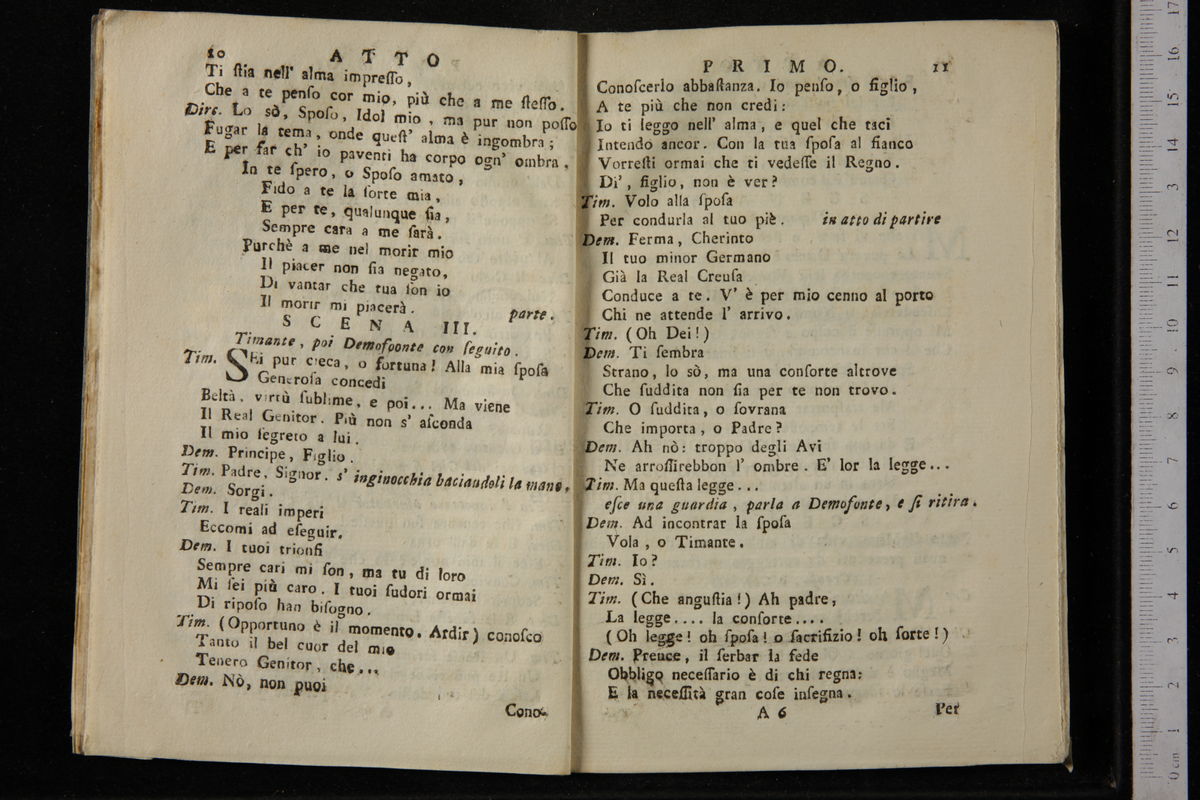 10 ATTO
Ti ſtia nell' alma impreſſo,
Che a te penſo cor mio, più che a me ſteſſo.
Dirc. Lo sò, Spoſo, Idol mio, ma pur non poſſo
Fugar la tema, onde queſt' alma è ingombra;
E per far ch' io paventi ha corpo ogn' ombra.
In te ſpero, o Spoſo amato,
Fido a te la ſorte mia,
E per te, qualunque ſia,
Sempre cara a me ſarà.
Purchè a me nel morir mio
Il piacer non ſia negato,
Di vantar che tua ſon io
Il morir mi piacerà. parte.
SCENA III.
Timante, poi Demofoonte con ſeguito.
Tim. SEi pur cieca, o fortuna! Alla mia ſpoſa
Generoſa concedi
Beltà, virtù ſublime, e poi... Ma viene
Il Real Genitor. Più non s' aſconda
Il mio ſegreto a lui.
Dem. Principe, Figlio.
Tim. Padre, Signor. s' inginocchia baciandoli la mano.
Dem. Sorgi.
Tim. I reali imperi
Eccomi ad eſeguir.
Dem. I tuoi trionfi
Sempre cari mi ſon, ma tu di loro
Mi ſei più caro. I tuoi ſudori ormai
Di ripoſo han biſogno.
Tim. (Opportuno è il momento. Ardir) conoſco
Tanto il bel cuor del mio
Tenero Genitor, che...
Dem. Nò, non puoi
Conoſ-
PRIMO. 11
Conoſcerlo abbaſtanza. Io penſo, o figlio,
A te più che non credi:
Io ti leggo nell' alma, e quel che taci
Intendo ancor. Con la tua ſpoſa al fianco
Vorreſti ormai che ti vedeſſe il Regno.
Di', figlio, non è ver?
Tim. Volo alla ſpoſa
Per condurla al tuo piè. in atto di partire
Dem. Ferma, Cherinto
Il tuo minor Germano
Già la Real Creuſa
Conduce a te. V' è per mio cenno al porto
Chi ne attende l' arrivo.
Tim. (Oh Dei!)
Dem. Ti ſembra
Strano, lo sò, ma una conſorte altrove
Che ſuddita non ſia per te non trovo.
Tim. O ſuddita, o ſovrana
Che importa, o Padre?
Dem. Ah nò: troppo degli Avi
Ne arroſſirebbon l' ombre. E' lor la legge...
Tim. Ma queſta legge...
eſce una guardia, parla a Demofonte, e ſi ritira.
Dem. Ad incontrar la ſpoſa
Vola, o Timante.
Tim. Io?
Dem. Sì.
Tim. (Che anguſtia!) Ah padre,
La legge.... la conſorte....
(Oh legge! oh ſpoſa! o ſacrifizio! oh ſorte!)
Dem. Prence, il ſerbar la fede
Obbligo neceſſario è di chi regna:
E la neceſſità gran coſe inſegna.
A 6 Per